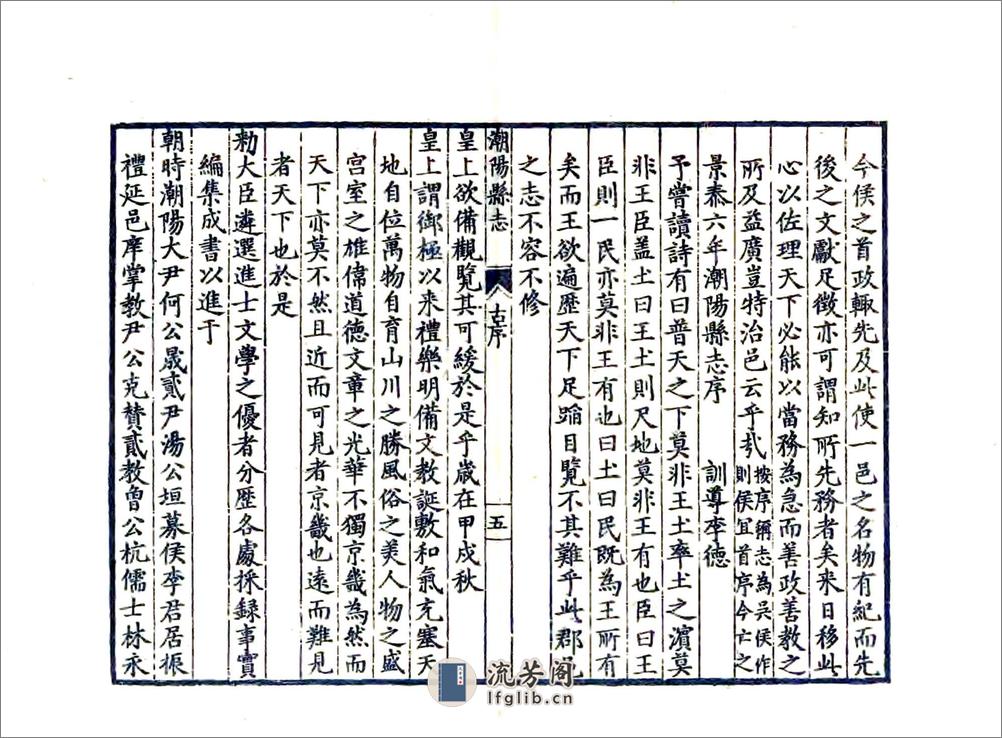 今侯之首政輒先及此使一邑之名物有紀而先
後之文獻足徵亦可謂知所先務者矣來日移此
心以佐理天下必能以當務為急而善政善教之
所及益廣豈特治邑云乎㢤按序稱志為吳侯作
則侯宜首序今亡之
景泰六年潮陽縣志序 訓導李德
予嘗讀詩有曰普天之下莫非王土率土之濵莫
非王臣盖土曰王土則尺地莫非王有也臣曰王
臣則一民亦莫非王有也曰土曰民既為王所有
矣而王欲遍歷天下足蹈目覽不其難乎此郡邑
之志不容不修
潮陽縣志 古序 五
皇上欲備觀覽其可緩於是乎歲在甲戌秋
皇上謂御極以来禮樂明備文教誕敷和氣充塞天
地自位萬物自育山川之勝風俗之美人物之盛
宫室之雄偉道德文章之光華不獨京畿為然而
天下亦莫不然且近而可見者京畿也遠而難見
者天下也於是
勑大臣遴選進士文學之優者分歷各處採録事實
編集成書以進于
朝時潮陽大尹何公晟貳尹湯公垣募侯李君居振
禮延邑庠掌教尹公克賛貳教魯公杭儒士林永
流芳阁
lfglib.cn